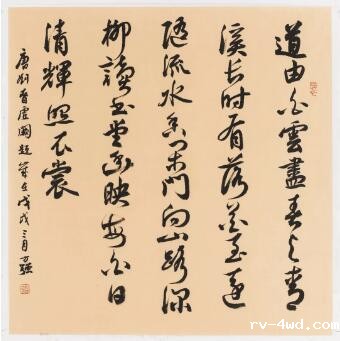 道由白雲盡春与青
溪長时有落花至遠
随流水香閑門向山路深
柳讀书堂幽映每白日
清輝照衣裳
唐劉昚虚阙题歲在戊戌三月万强
rv-4wd.com